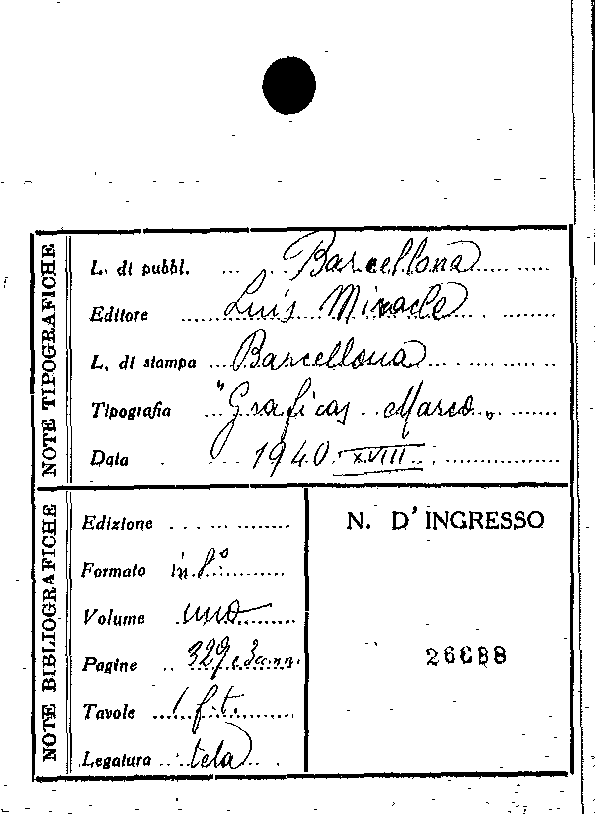 NOTE TIPOGRAFICHE
L. di pubbl. Barcellona
Editore Luis Miracle
L. di stampa Barcellona
Tipografia "Graficas Marco"
Data 1940 XVIII
NOTE BIBLIOGRAFICHE
Edizione
Formato in 8°
Volume uno
Pagine 329 e 3
Tavole 1 f.t.
Legatura tela
N. D'INGRESSO